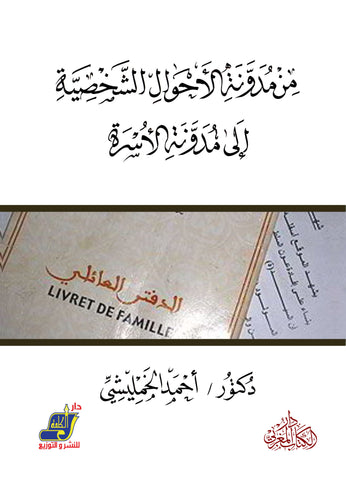 مِنْ مُدَوَّنَةِ الأَحْوَالِ الشَّخْصِيَّةِ
إِلَى مُدَوَّنَةِ الأُسْرَةِ
الدفتر العائلي
LIVRET DE FAMILLE
دكتور / أحمد الخمليشي
دار
الكلمة
للنشر و التوزيع
دار
الكتاب المغربي